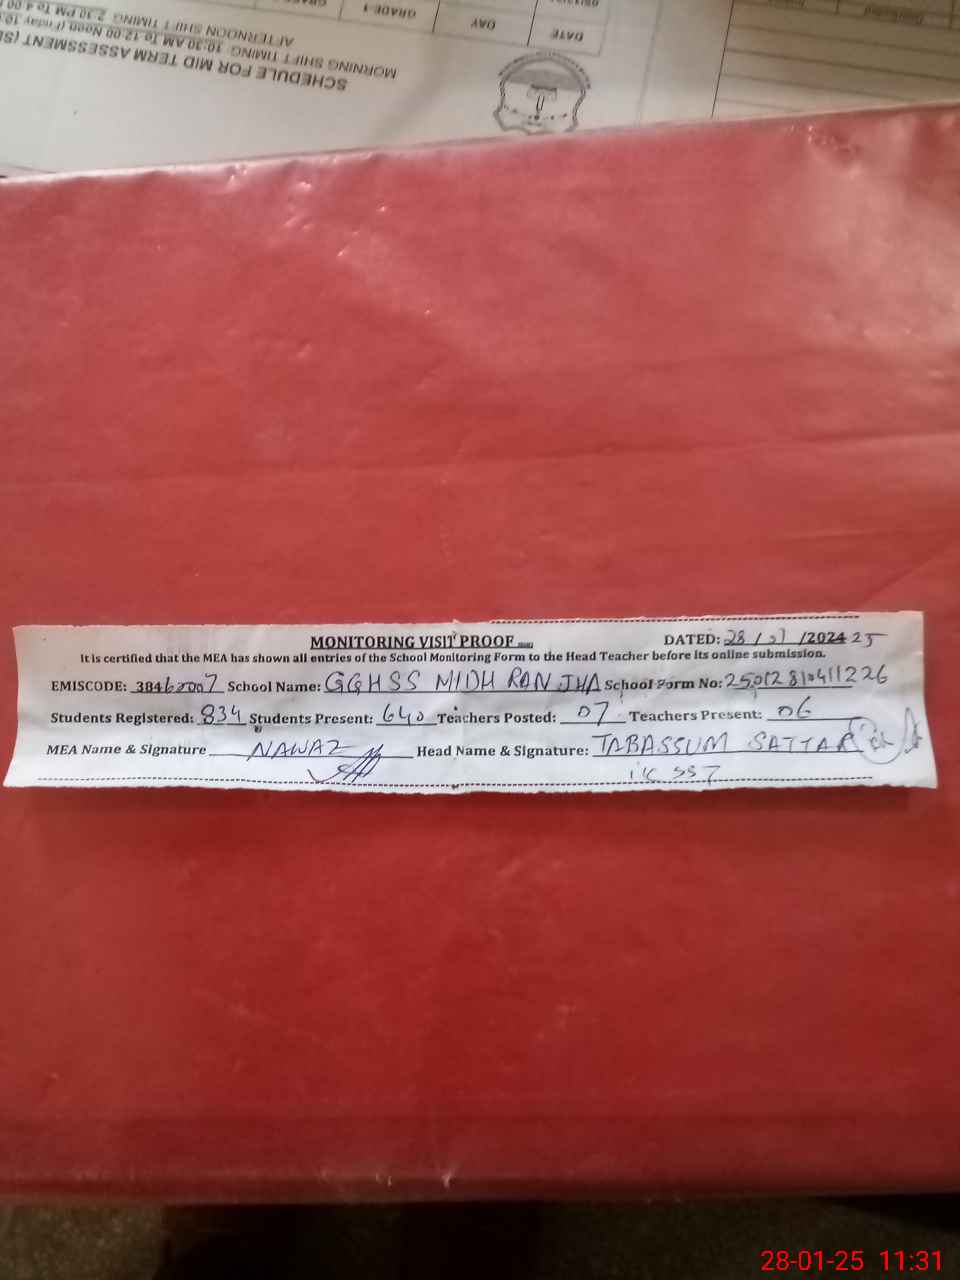 DATE
DAY
GRADE-1
SCHEDULE FOR MID TERM ASSESSMENT
MORNING SHIFT TIMING: 10:30 AM To 12:00 Noon (Friday
AFTERNOON SHIFT TIMING: 2:30 PM To 4:00
MONITORING VISIT PROOF
DATED: 28/01/2024 25
It is certified that the MEA has shown all entries of the School Monitoring Form to the Head Teacher before its online submission.
EMISCODE: 38462007 School Name: GGHSS MIDH RANJHA School Form No: 25012810411226
Students Registered: 834 Students Present: 640 Teachers Posted: 07 Teachers Present: 06
MEA Name & Signature NAWAZ Head Name & Signature: TABASSUM SATTAR
SST
28-01-25 11:31